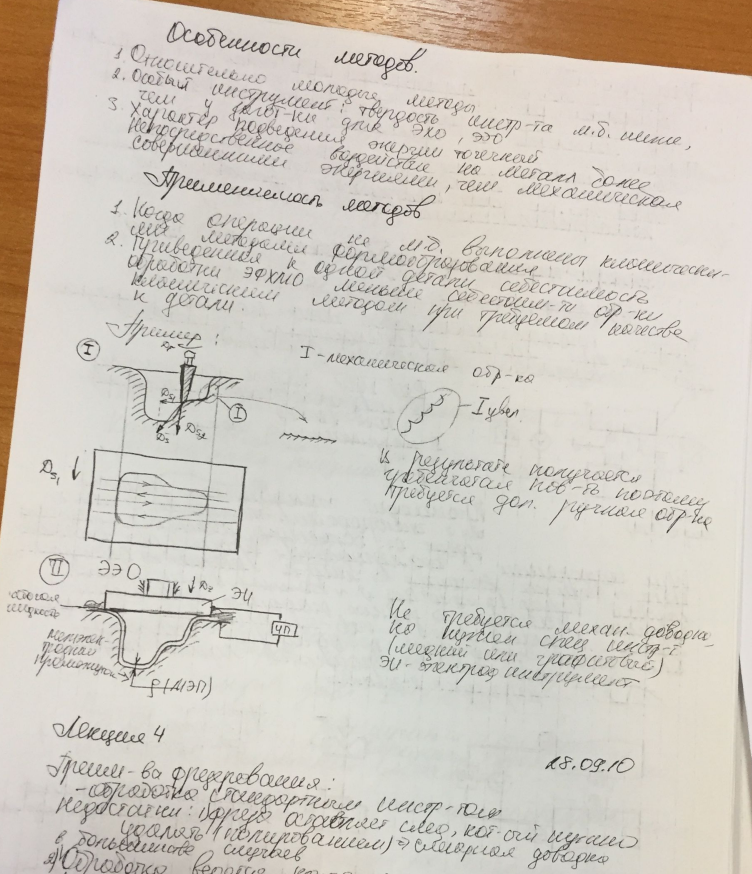 Особенности методов.
1. Относительно молодые методы
2. Особый инструмент: твердость инстр-та м.б. ниже,
чем у загот-ки для ЭХО, ЭЭО
3. Характер подведения энергии точечный
Непосредственное воздействие на металл более
совершенными энергиями, чем механическая
Применимость методов
1. Когда операции не м.б. выполнены клинически-
ми методами формообразования
2. Приведенная к одной детали себестоимость
обработки ЭФХМО меньше себестоим-ти обр-ки
методом при требуемом качестве
к детали.
Пример:
I
I-механическая обр-ка
Dr
Ds1
Ds
Ds2
I
I увел.
В результате получается
гребенчатая пов-ть поэтому
требуется доп. ручная обр-ка
Ds1
II
ЭЭО
Dr
ЭИ
жидкость
ИП
межэлек
тродный
промежуток
ρ(МЭП)
Не требуется механ. доводка,
но нужен спец инстр-т
(медный или графитовый)
ЭИ-электрод инструмент
Лекция 4
28.09.10
Преим-ва фрезерования:
-обработка стандартным инстр-том
Недостатки: 1) фреза оставляет след, кот-ый нужно
удалять (полированием) ⇒ слесарная доводка
в большинстве случаев
2) Обработка